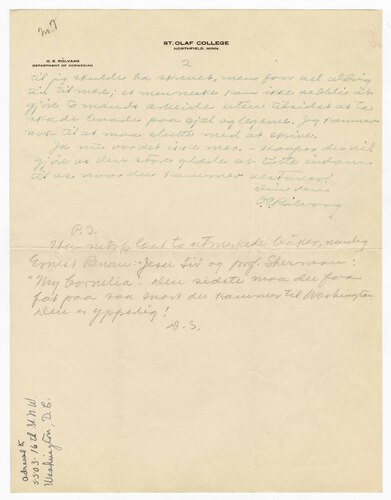 ST. OLAF COLLEGE
NORTHFIELD, MINN.
O. E. ROLVAAG
DEPARTMENT OF NORWEGIAN
2
til jeg skulde ha skrevet, men faar vel aldrig
tid til mer; et menneske kan ikke
gjøre to mands arbeide uten tilsidst at ta
skade baade paa sjæl og legeme. Jeg kommer
nok til at maa slutte med at skrive.
Ja nu vordet ikke mer. – Haaper du vil
gjøre os den store glæde at titte indom
til os naar du kommer
Din ven
O E Rölvaag
P.S.
Har netop læst to utmerkede bøker, nemlig
Ernest Renan: Jesu Liv og prof. Sherman:
"My Cornelia". Den sidste maa du faa
fat paa saa snart du kommer til Washington
Den er yppedig!
D.S.
5503-16th St N.W
Washington, D.C.